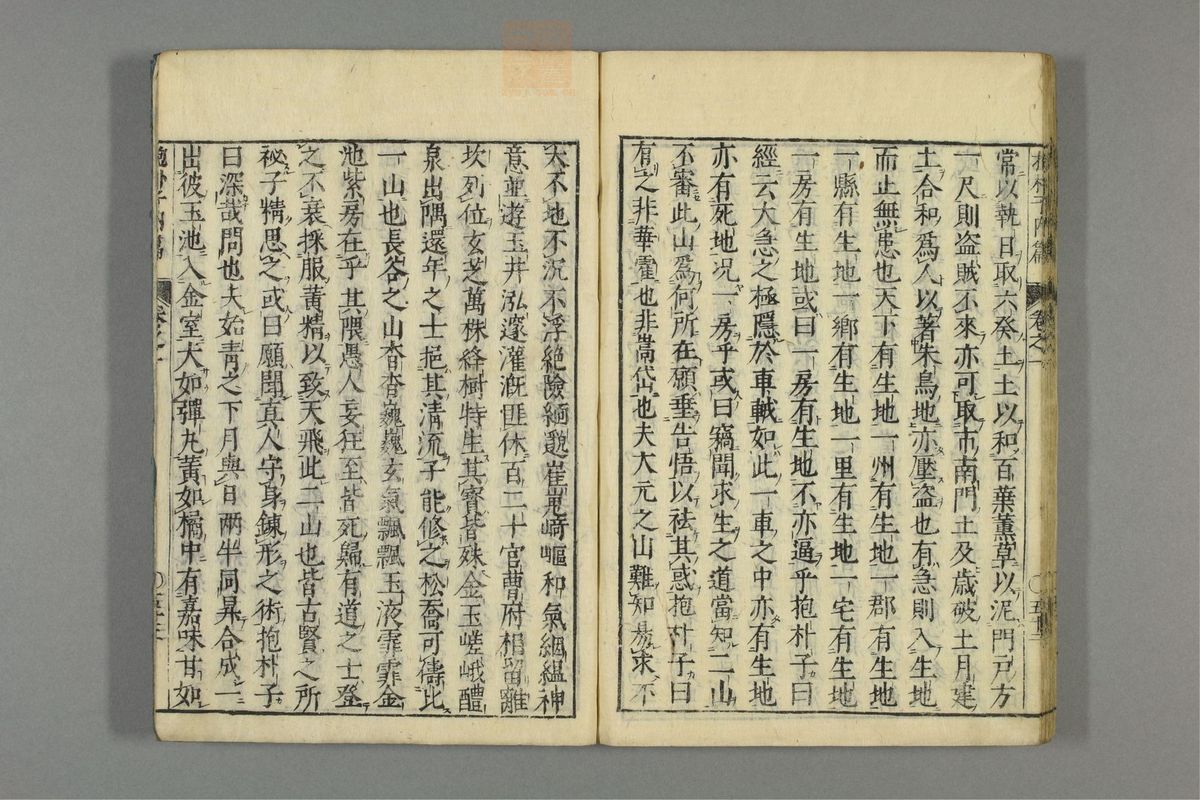 常以執日取六癸上土以和百葉薫草以泥門戸方
一尺則盗賊不來亦可取市南門土及歳破土月建
土合和爲人以著朱鳥地亦壓盗也有急則入生地
而止無患也天下有生地一州有生地一郡有生地
一縣有生地一鄉有生地一里有生地一宅有生地
一房有生地或曰一房有生地不亦逼乎抱朴子曰
經云大急之極隱於車軾如此一車之中亦有生地
亦有死地况一房乎或曰竊聞求生之道當知二山
不審此山爲何所在願垂告悟以祛其惑抱朴子曰
有之非華霍也非嵩岱也夫大元之山難知易求不
天不地不沉不浮絶險緬邈崔嵬崎嶇和氣絪縕神
意並遊玉井泓邃灌漑匪休百二十官曹府相留離
坎列位玄芝萬株絳樹特生其寳皆殊金玉嵯峨醴
泉出隅還年之士挹其清流子能修之松喬可儔此
一山也長谷之山杳杳巍巍玄氣飄飄玉液霏霏金
池紫房在乎其隈愚人妄往至皆死歸有道之士登
之不衰採服黄精以致天飛此二山也皆古賢之所
祕子精思之或曰願聞真人守身錬形之術抱朴子
曰深哉問也夫始青之下月與日兩半同昇合成一
出彼玉池入金室大如彈丸黄如橘中有嘉味甘如
抱朴子内篇 卷之一